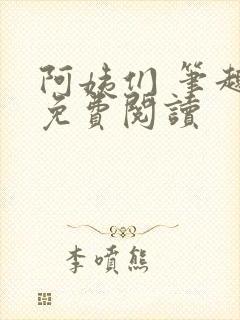 阿姨们 筆趣
免費閱讀
李噴熊